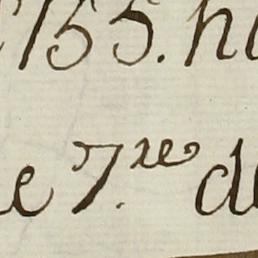 155. h
e 7.re d